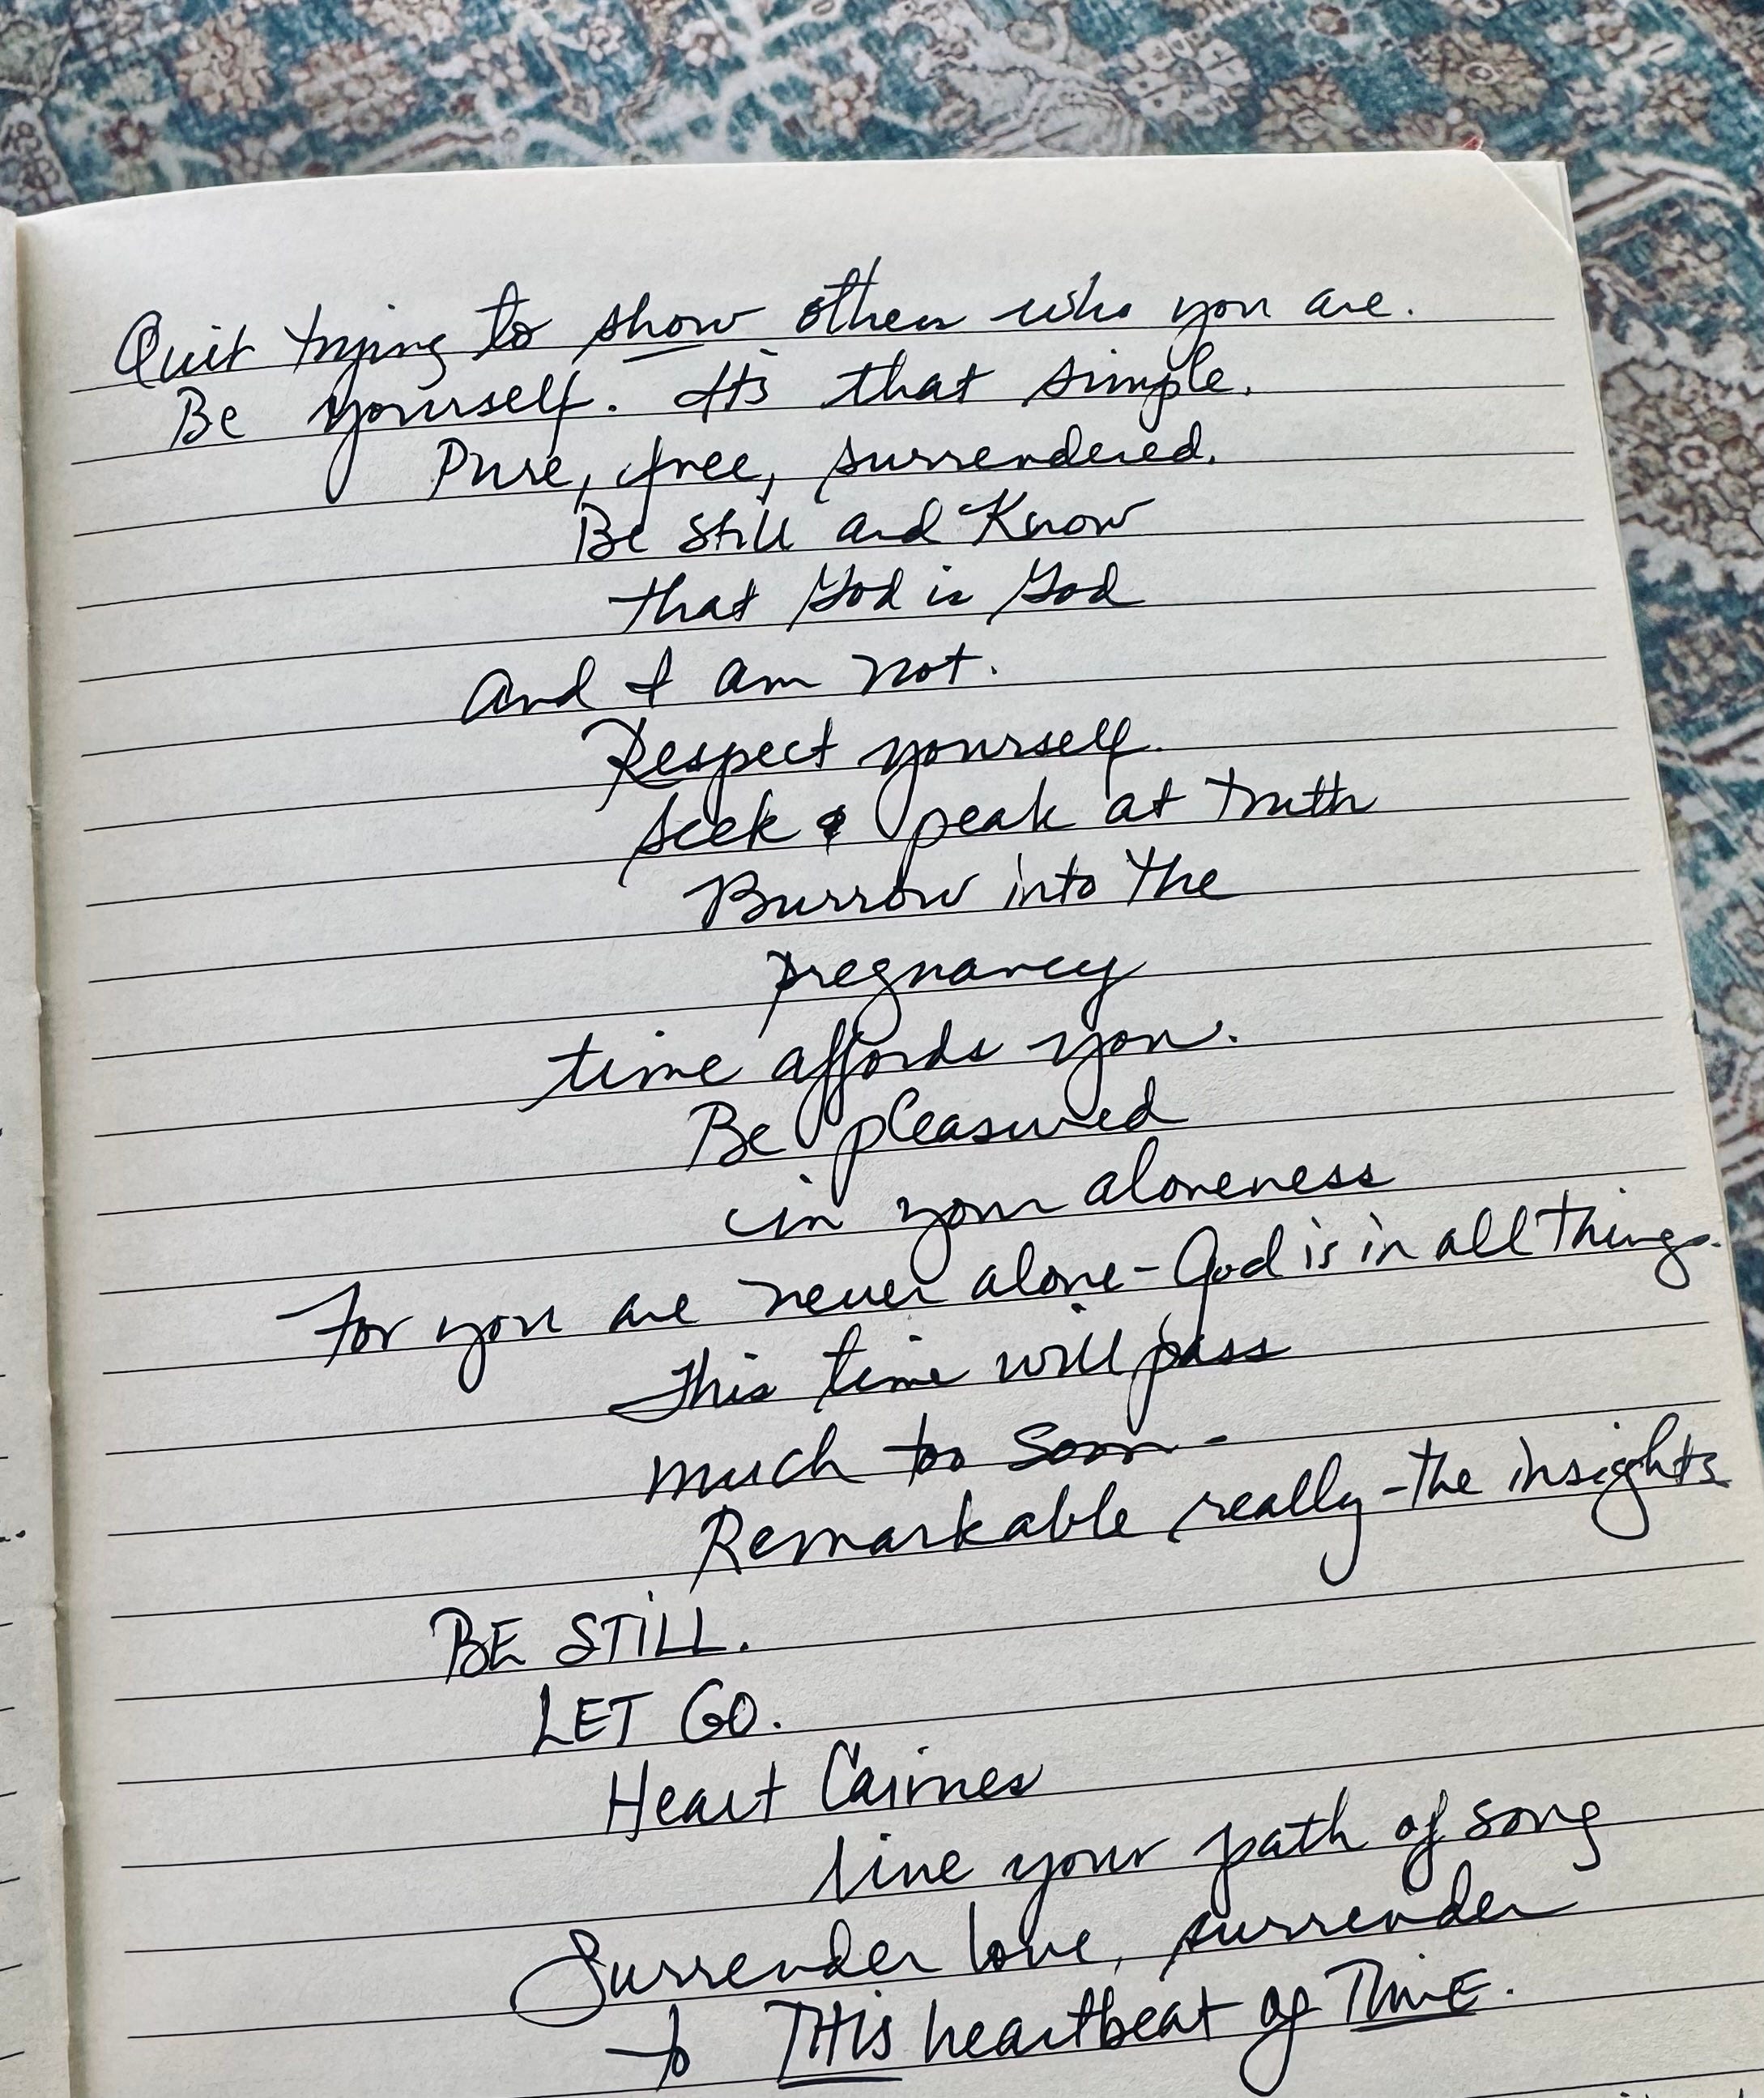 Quit trying to show others who you are.
Be yourself. It's that simple.
Pure, free, surrendered.
Be still and Know
that God is God
and I am not.
Respect yourself.
seek & peak at truth
Burrow into the
pregnancy
time affords you.
Be pleasured
in your aloneness
For you are never alone - God is in all things.
This time will pass
much too soon -
Remarkable really - the insights
BE STILL.
LET GO.
Heart Cairnes
line your path of song
Surrender love, surrender
to THIS heartbeat of TIME.